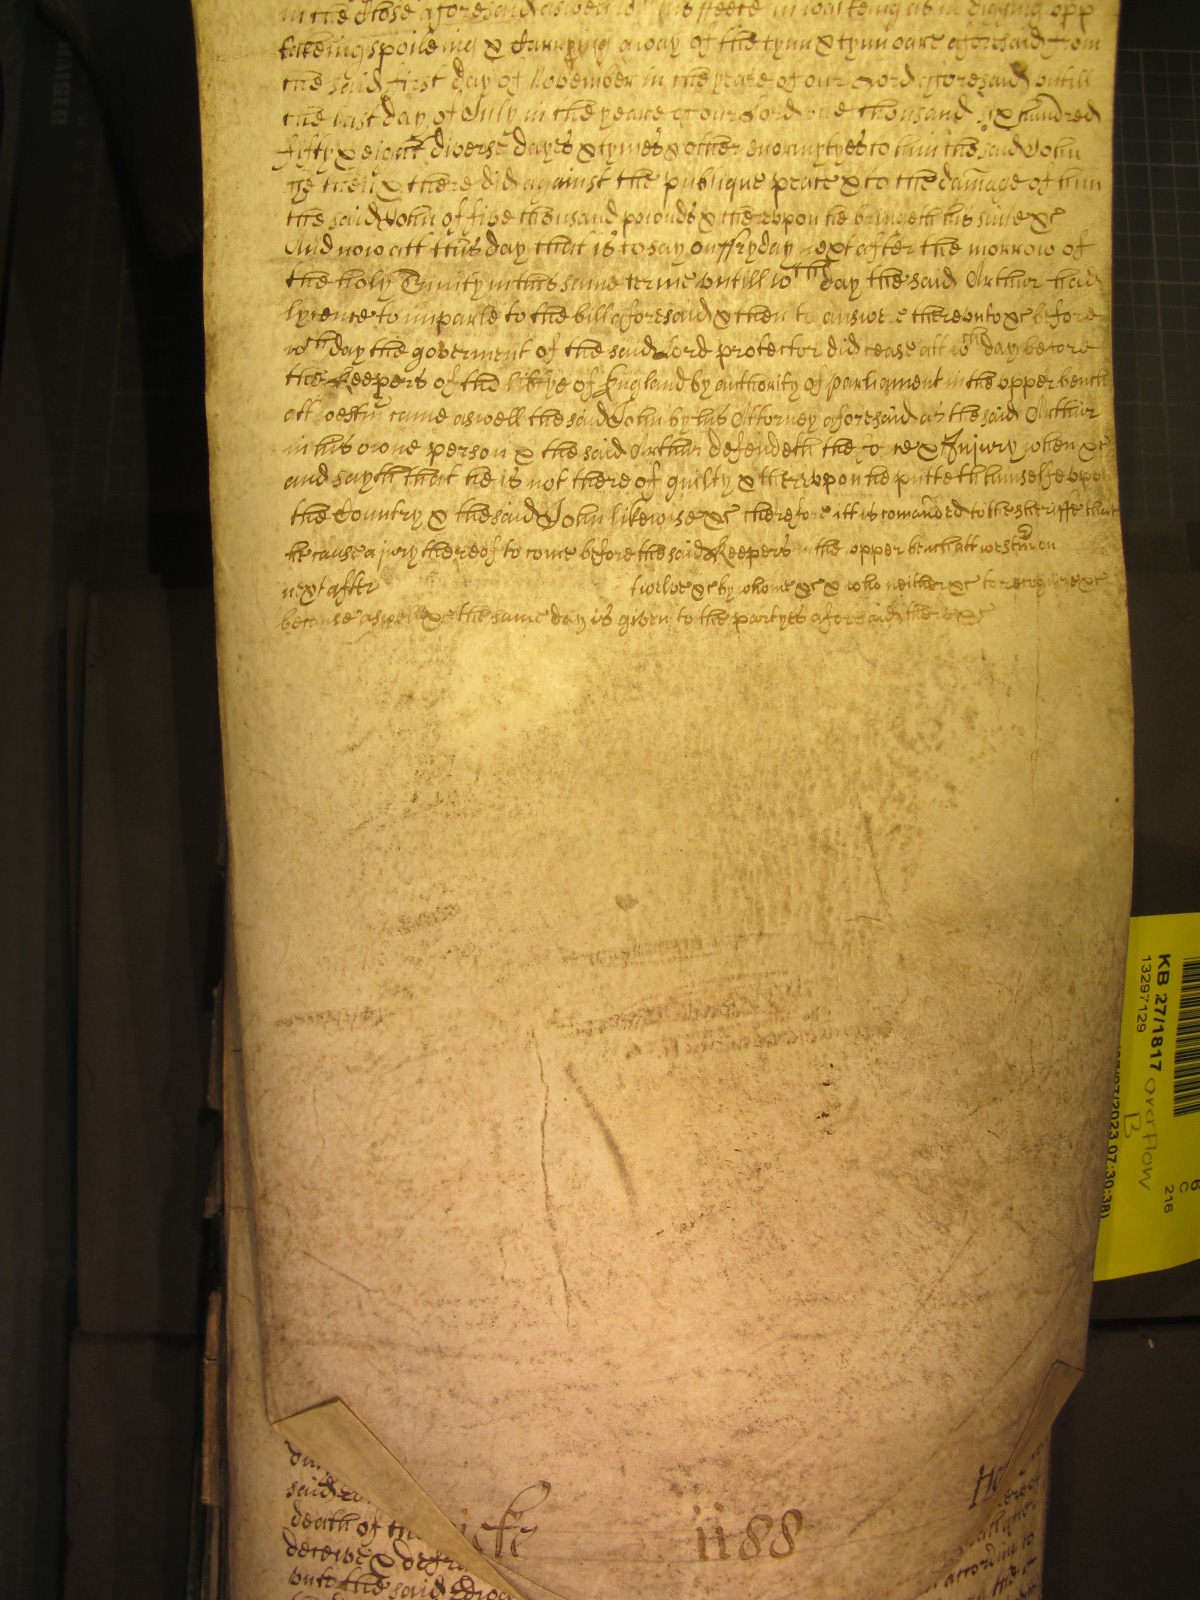 in the Close aforesaid aswell his ffeete in walking as in digging opp
takeing spoileing & Carrying away of the tynn & tynn oare aforesaid from
the said first day of November in the yeare of our Lord aforesaid untill
the last day of July in the yeare of our Lord one thousand six hundred
fifty & eight diverse dayes & tymes & other enormytyes to him the said John
he then & there did against the publique peace & to the damage of him
the said John of five thousand pounds & thereupon he bringeth his suite &c
And now att this day that is to say on ffryday next after the morrow of
the holy Trinity in this same terme untill wch day the said Arthur had
lycence to imparle to the bill aforesaid & then to answere thereunto &c before
wch day the goverment of the said Lord protector did cease att wch day before
the Keepers of the libtye of England by authority of parliament in the opper bench
att westm came aswell the said John by his Attorney aforesaid as the said Arthur
in his owne person & the said Arthur defendeth the force & Injury when &c
and sayth that he is not there of guilty & thereupon he putteth himselfe upon
the Country & the said John likewise &c therefore itt is comanded to the sheriffe that
he cause a jury thereof to come before the said Keepers in the opper bench att westm on
next after twelve &c by whome &c & who neither &c to recognize &c
because aswell &c the same day is given to the partyes aforesaid there &c
said
death of the
deceive &
unto the said
1188
according to
KB 27/1817
13297129
overflow
B
6
C
216
07/2023 07:30:38)